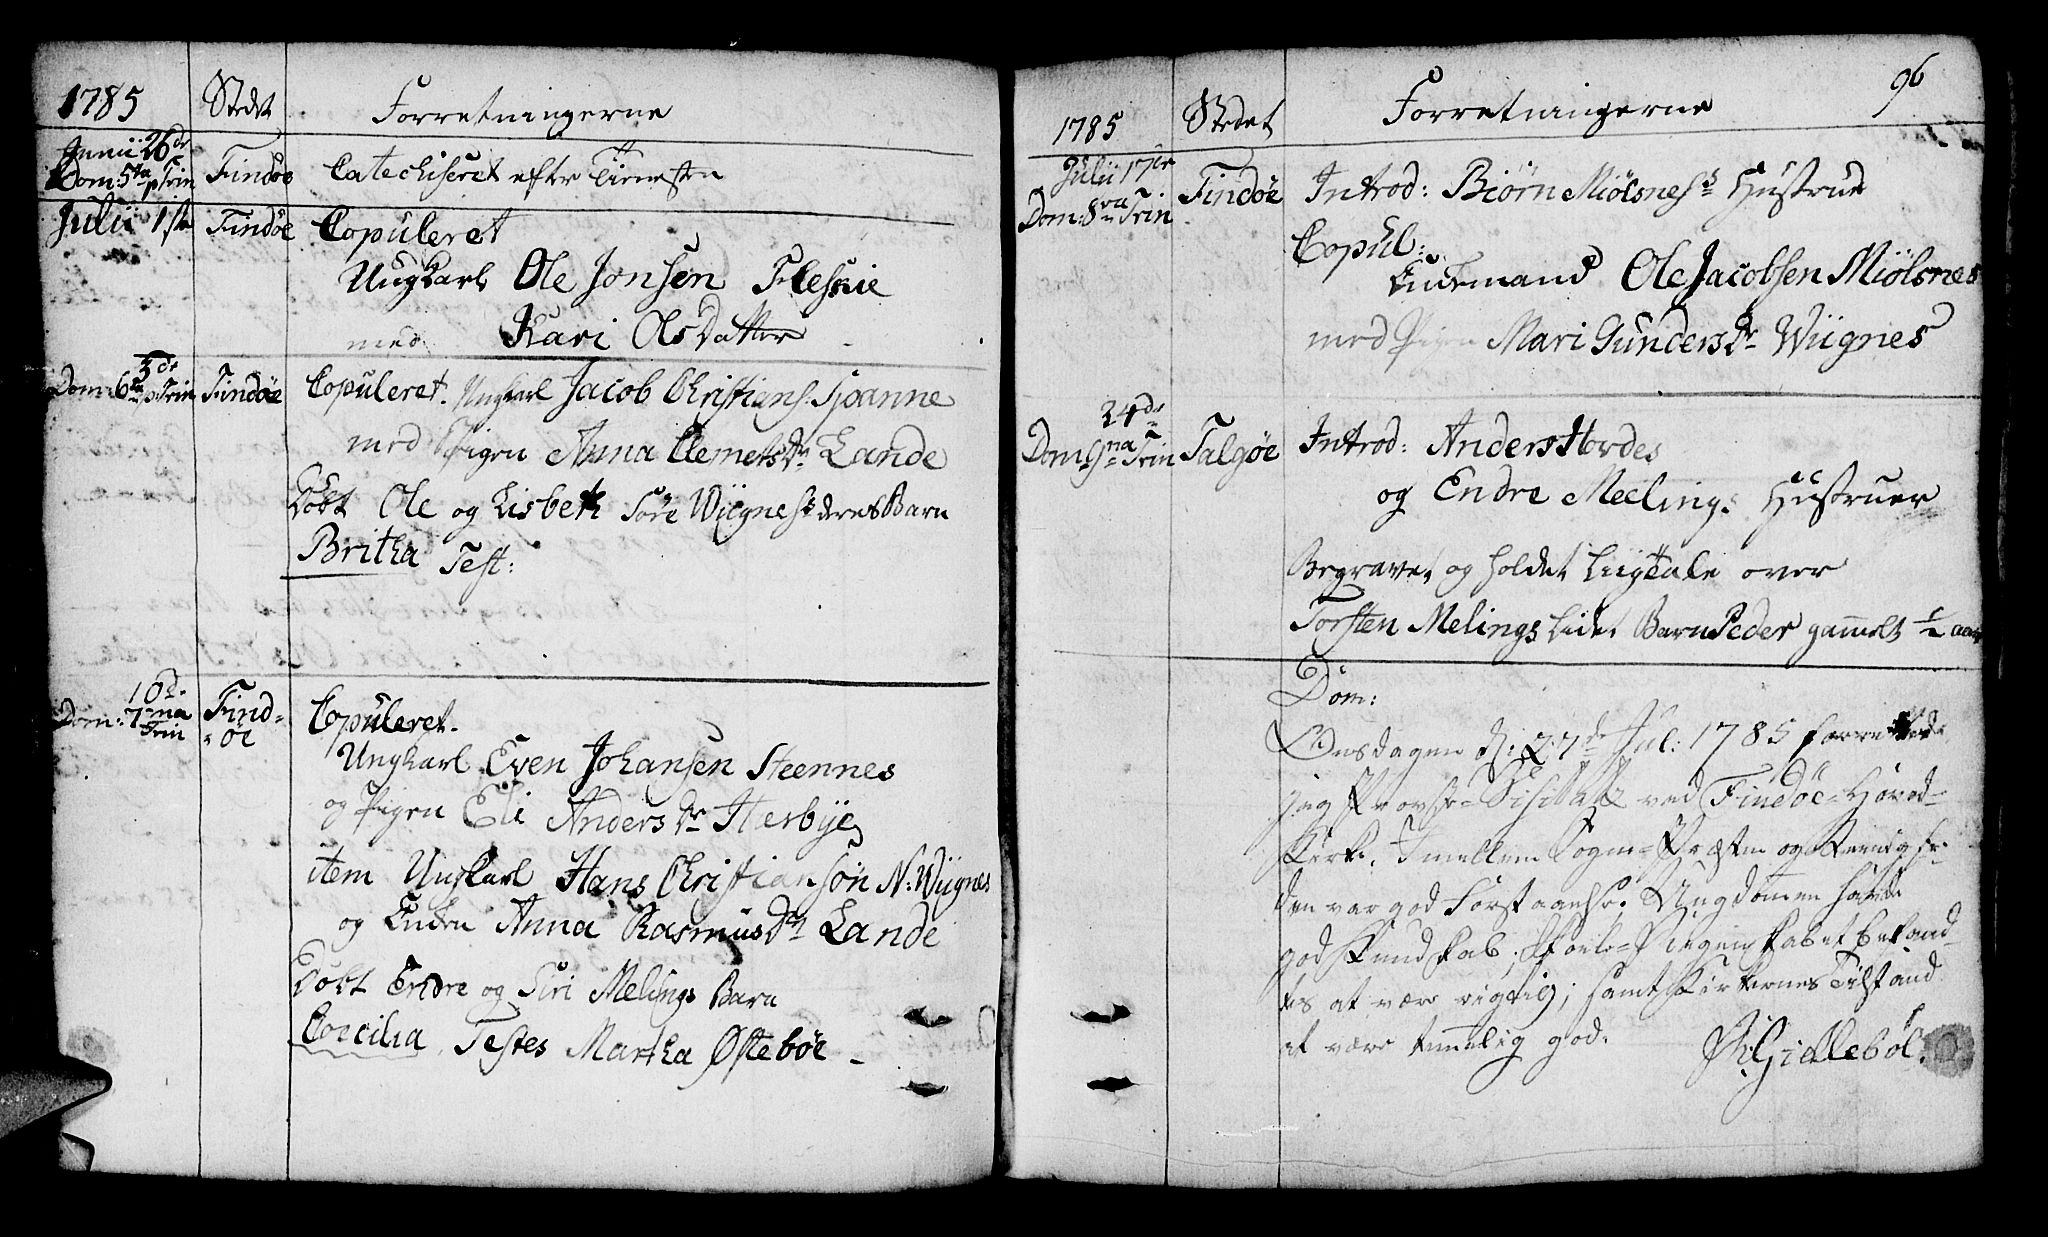 1785 Stedet Forretningerne
Junii 26de
Dom: 5ta p Trin Findøe Catechiseret efter Tienesten
Julii 1ste Findøe Copuleret
Ungkarl Ole Jonsen
med Kari Olsdatter
3de
Dom: 6ta p Trin Findøe Copuleret. Ungkarl Jacob Christians. Spanne
med Pigen Anna Clemetsdr Lande
Døbt Ole og Lisbeth Søre Wiignes deres Barn
Britha Test:
10de
Dom: 7ma Trin Findøe Copuleret.
Ungkarl Even Johansen Steennes
og Pigen Eli Andersdr Hesbye
item Ungkarl Hans Christiansøn N: Wiignes
og Enken Anna Rasmusdr Lande
Døbt Endre og Siri Melings Barn
Coecilia Testes Martha Østebøe
96
1785 Stedet Forretningerne
Julii 17de
Dom: 8va Trin Findøe Introd: Biørn Miølsness Hustrue
Copul:
Enkemand Ole Jacobsen Miølsnes
med Pigen Mari Gundersdr Wiignes
24de
Dom 9na Trin Talgøe Introd: Anders Hordes
og Endre Meelings Hustruer
Begravet og holdet Liigtale over
Torsten Melings lidet Barn Peder gammelt 1/2 aar
Dom:
Onsdagen d: 27de Jul: 1785 forrettede
jeg Provste-Visitatz ved Findøe Hoved-
Kirke. Imellem Sogne-Præsten og Meenighe-
den var god Forstaaelse. Ungdommen havde
god Kundskab; Skole-Væsenet befand-
tes at være rigtig; samt Kirkernes Tilstand
at være temmelig god.
Giellebøl.